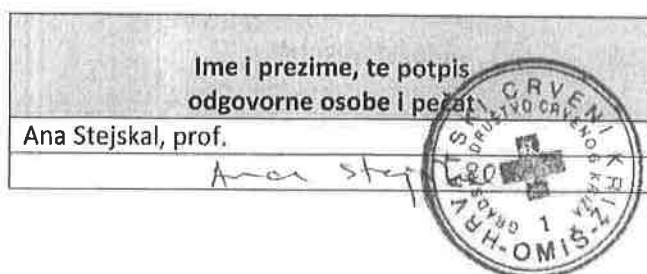 Ime i prezime, te potpis
odgovorne osobe i pečat
Ana Stejskal, prof.
Ana Stejskal
HRVATSKI CRVENI KRIŽ
GRADSKO DRUŠTVO CRVENOG KRIŽA
1
OMIŠ